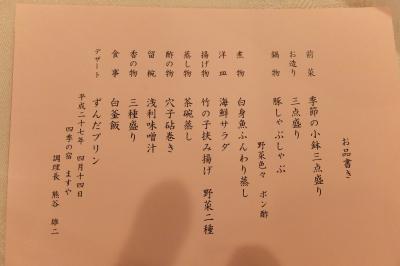 お品書き
前菜 季節の小鉢三点盛り
お造り 三点盛り
鍋物 豚しゃぶしゃぶ
野菜色々 ポン酢
煮物 白身魚ふんわり蒸し
洋皿 海鮮サラダ
揚げ物 竹の子挟み揚げ 野菜二種
蒸し物 茶碗蒸し
酢の物 穴子砧巻き
留椀 浅利味噌汁
香の物 三種盛り
食事 白釜飯
デザート ずんだプリン
平成二十七年 四月十四日
四季の宿 ますや
調理長 熊谷 雄二